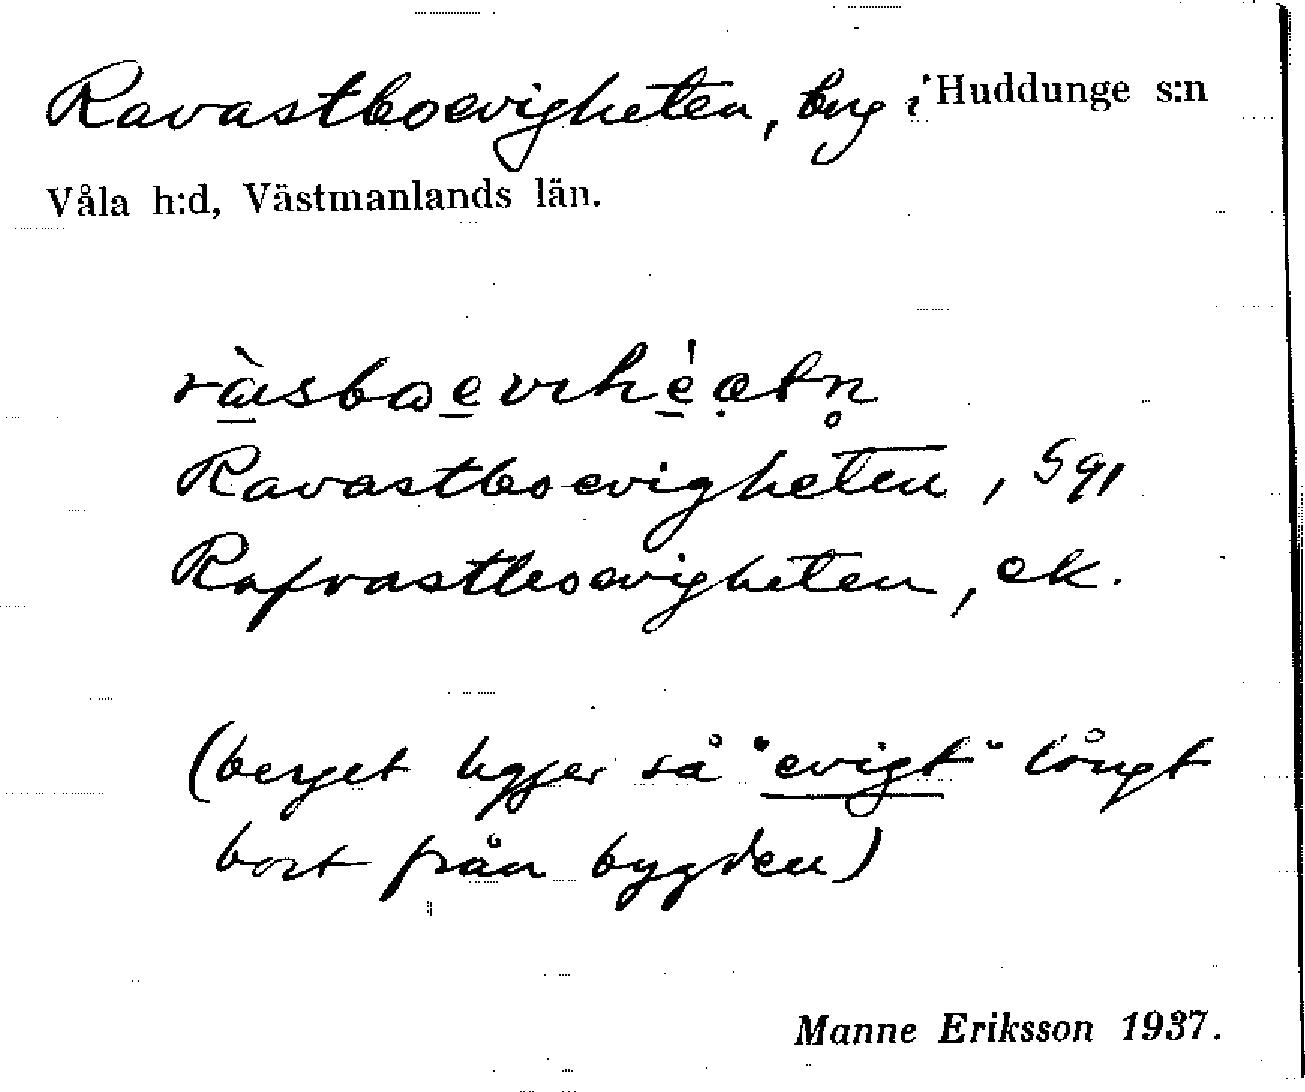 Ravastboevigheten, brg i Huddunge s:n
Våla h:d, Västmanlands län.
Ravastboevigheten,
Rafvastboevigheten, ek.
(berget ligger så "evigt" långt
bort från bygden)
Manne Eriksson 1937.